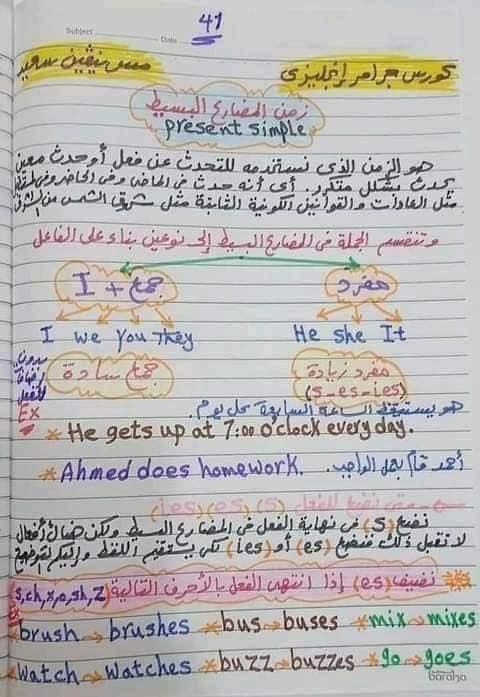 41
Subject
Date
كورس جرامر إنجليزى
مس نيڤين سعيد
زمن المضارع البسيط
present simple
هو الزمن الذى نستخدمه للتحدث عن فعل أو حدث معين
يحدث بشكل متكرر. أى أنه حدث فى الماضى وفى الحاضر وفى المستقبل
مثل العادات والقوانين الكونية الثابتة مثل شروق الشمس من الشرق
وتنقسم الجملة فى المضارع البسيط إلى نوعين بناء على الفاعل
مفرد
جمع + I
He she It
I we You They
مفرد زيادة
(s-es-ies)
جمع سادة
بدون
للفعل
Ex
هو يستيقظ الساعة السابعة كل يوم.
* He gets up at 7:00 o'clock every day.
* Ahmed does homework. أحمد قام بعمل الواجب.
متى نضيف للفعل (s) (es) (ies)
نضيف (s) فى نهاية الفعل فى المضارع البسيط ولكن هناك أفعال
لا تقبل ذلك فنضيف (es) أو (ies) لكى يستقيم اللفظ وإليكم توضيح
نضيف (es) إذا انتهى الفعل بالأحرف التالية (s, ch, x, o, sh, z)
brush → brushes * bus → buses * mix → mixes
watch → watches * buzz → buzzes * go → goes
baraka